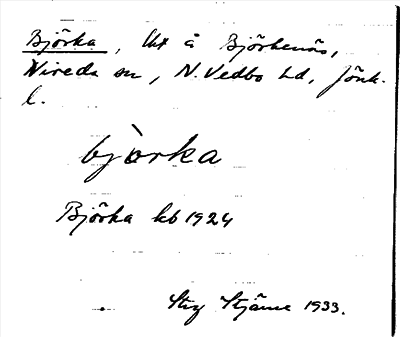 Björka, Ux å Björkenäs,
Nireda sn, N. Vedbo hd, Jönk.
l.
bjòrka
Björka kb 1924
Stig Stjärne 1933.